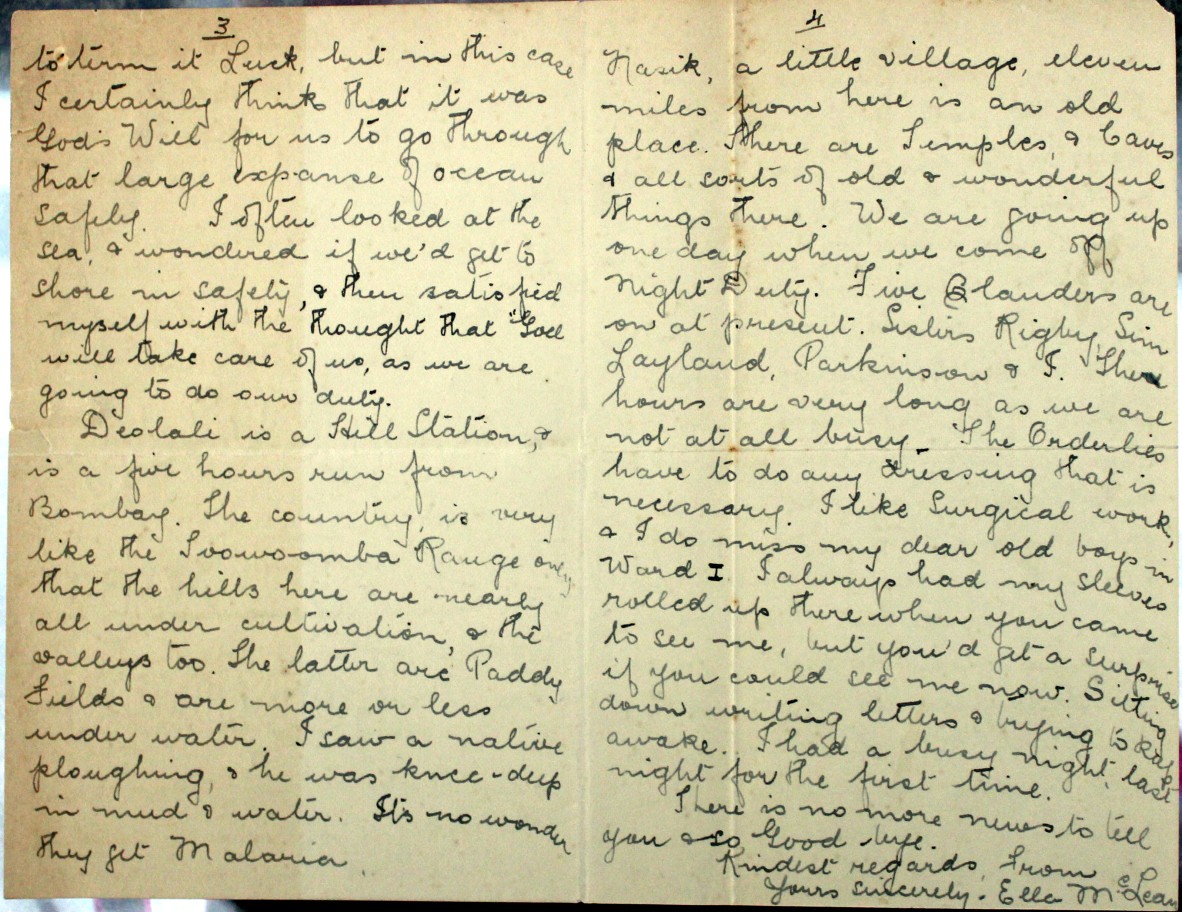 3
to term it Luck, but in this case
I certainly think that it was
God's Will for us to go through
that large expanse of ocean
safely. I often looked at the
sea, & wondered if we'd get to
shore in safety, & then satisfied
myself with the thought that "God
will take care of us, as we are
going to do our duty.
Deolali is a Hill Station, &
is a five hours run from
Bombay. The country, is very
like the Toowoomba Range only
that the hills here are nearly
all under cultivation, & the
valleys too. The latter are Paddy
Fields & are more or less
under water. I saw a native
ploughing, & he was knee-deep
in mud & water. It's no wonder
they get Malaria.
4
Nasik, a little village, eleven
miles from here is an old
place. There are Temples, & Caves
& all sorts of old & wonderful
things there. We are going up
one day when we come off
Night Duty. Five Q'landers are
on at present. Sisters Rigby, Sim
Layland, Parkinson & I. The
hours are very long as we are
not at all busy. The Orderlies
have to do any dressing that is
necessary. I like Surgical work,
& I do miss my dear old boys in
Ward I. I always had my sleeves
rolled up there when you came
to see me, but you'd get a surprise
if you could see me now. Sitting
down writing letters & trying to keep
awake. I had a busy night, last
night for the first time.
There is no more news to tell
you & so Good bye.
Kindest regards, from
Yours sincerely. Ella McLean